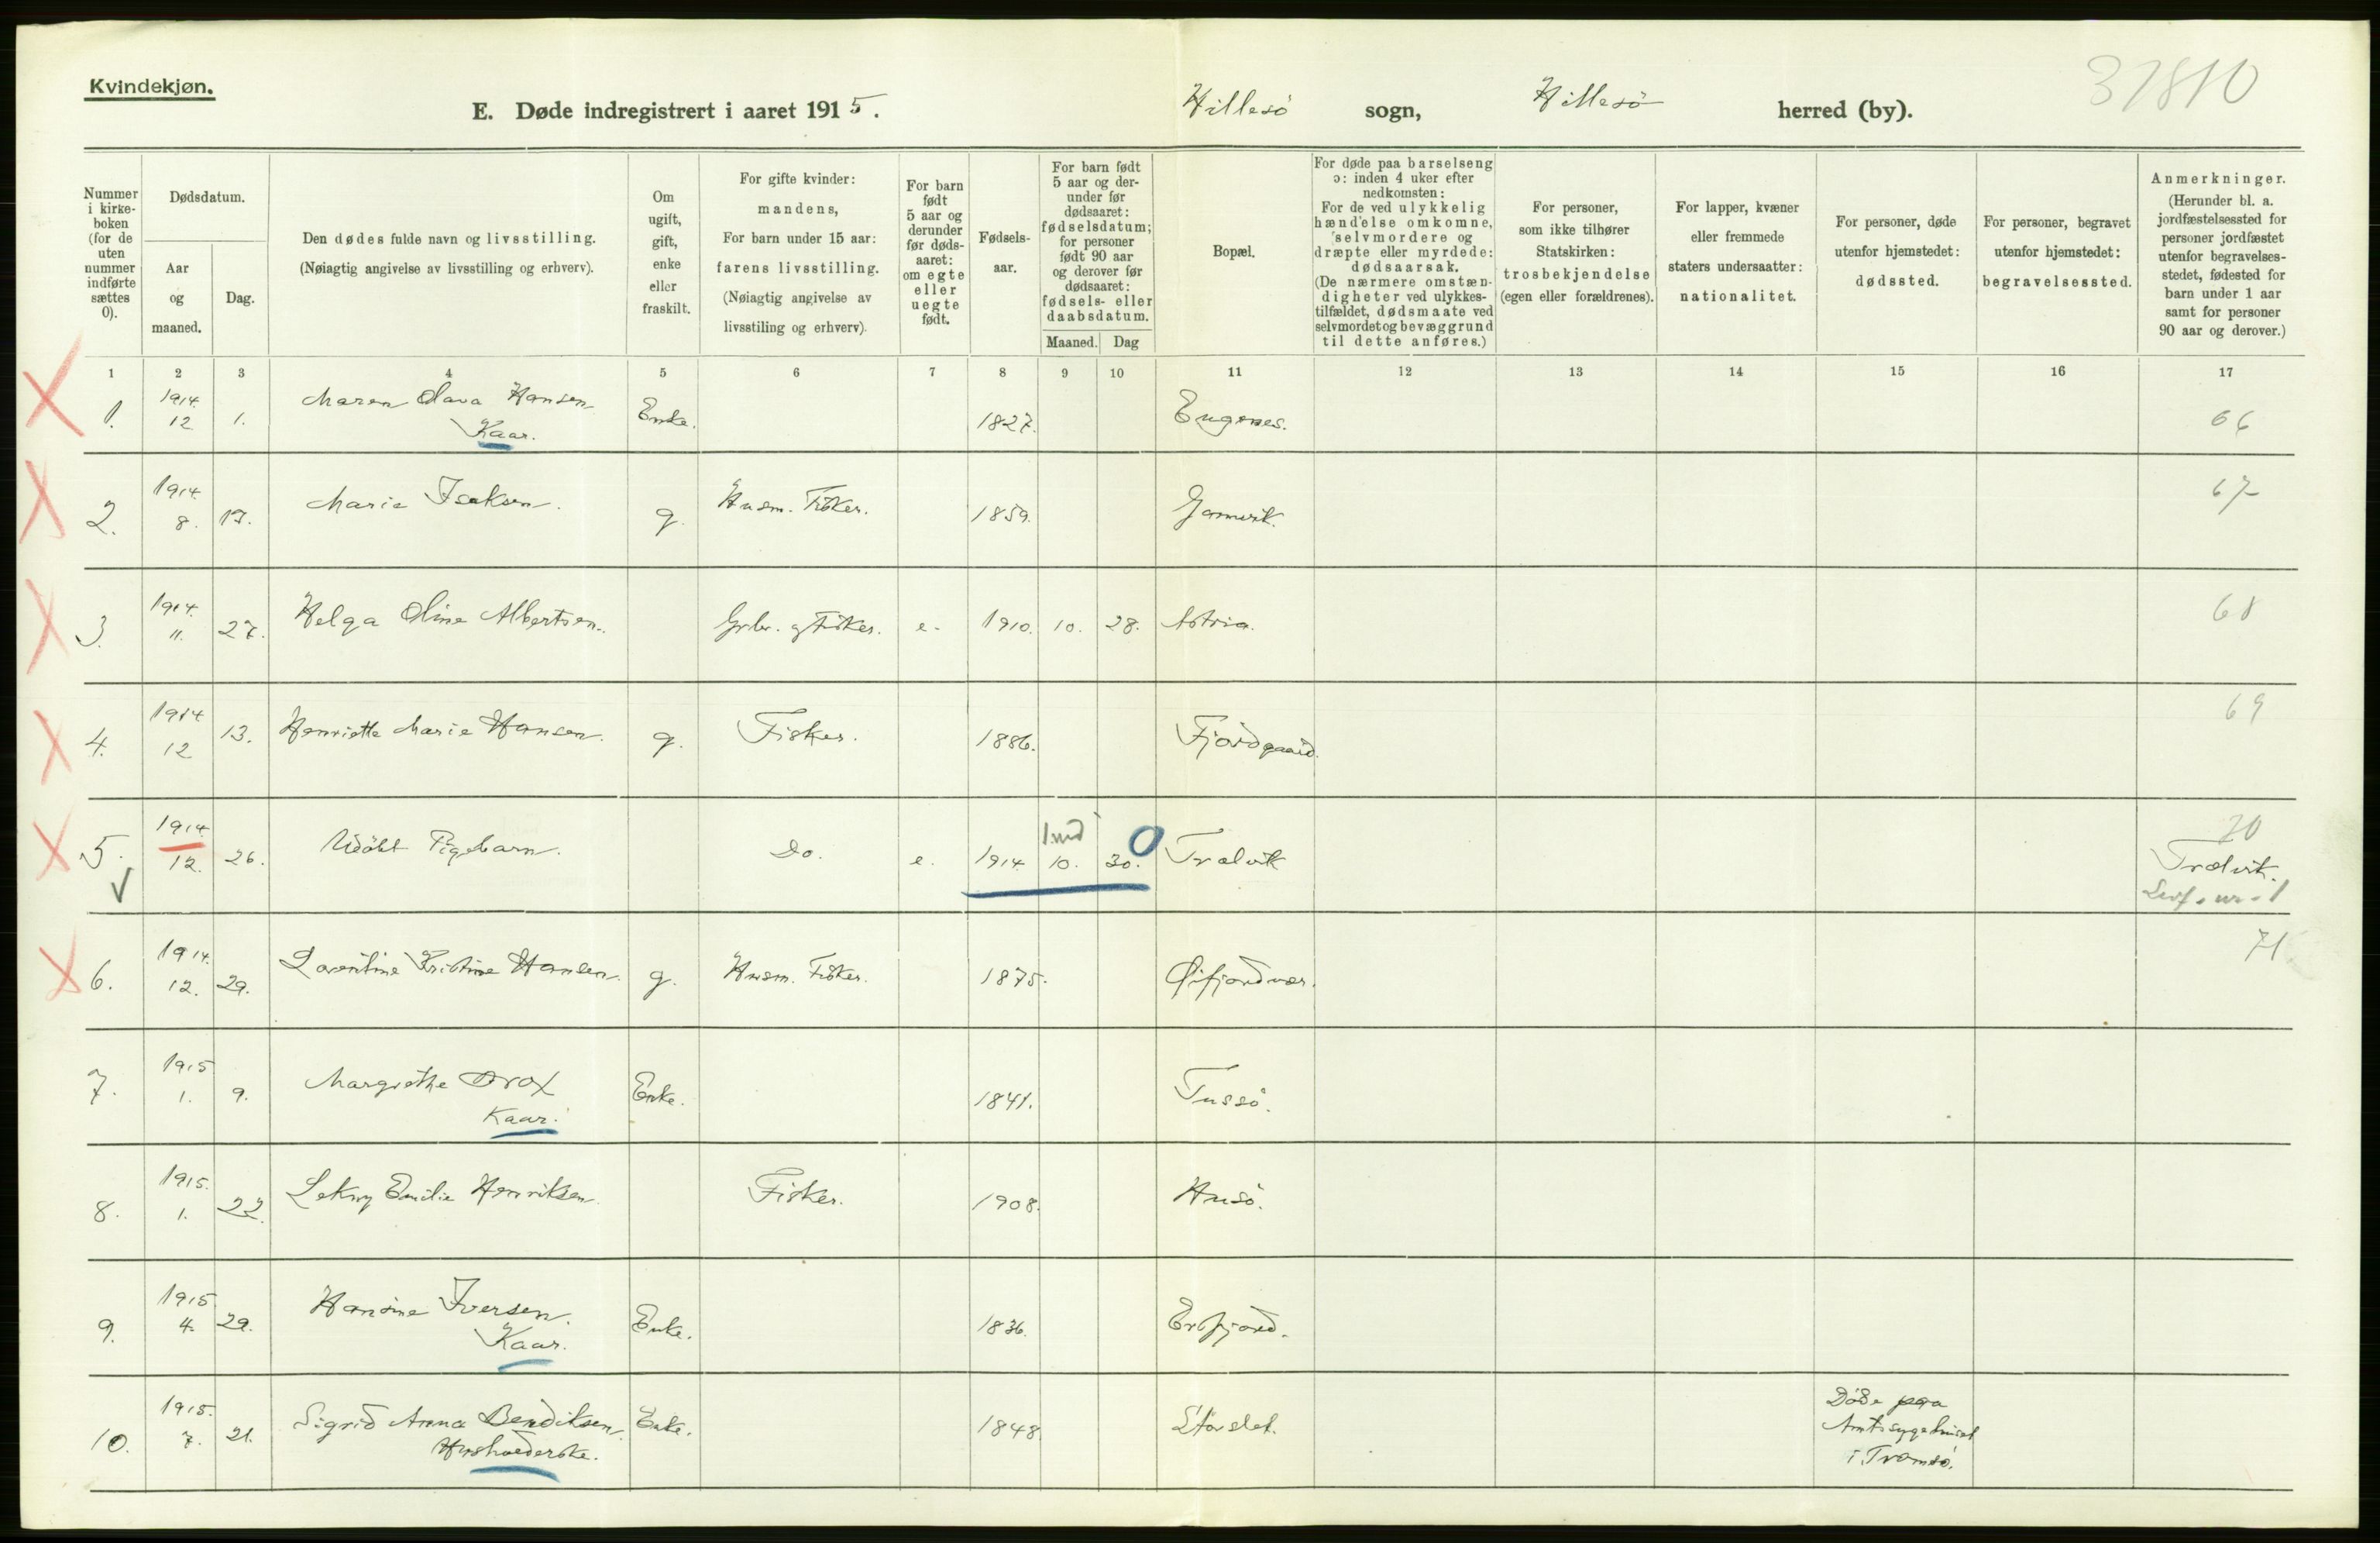 Kvindekjøn.
E. Døde indregistrert i aaret 1915.
Hillesö sogn, Hillesö herred (by).
31810
Nummer i kirke-boken (for de uten nummer indførte sættes 0).
Dødsdatum.
Aar og maaned.
Dag.
Den dødes fulde navn og livsstilling.
(Nøiagtig angivelse av livsstilling og erhverv).
Om ugift, gift, enke eller fraskilt.
For gifte kvinder: mandens,
For barn under 15 aar: farens livsstilling.
(Nøiagtig angivelse av livsstiling og erhverv).
For barn født 5 aar og derunder før døds-aaret: om egte eller uegte født.
Fødsels-aar.
For barn født 5 aar og der-under før dødsaaret: fødselsdatum; for personer født 90 aar og derover før dødsaaret: fødsels- eller daabsdatum.
Maaned. Dag
Bopæl.
For døde paa barselseng ɔ: inden 4 uker efter nedkomsten:
For de ved ulykkelig hændelse omkomne, selvmordere og dræpte eller myrdede: dødsaarsak.
(De nærmere omstæn-digheter ved ulykkes-tilfældet, dødsmaate ved selvmordet og bevæggrund til dette anføres.)
For personer, som ikke tilhører Statskirken: trosbekjendelse (egen eller forældrenes).
For lapper, kvæner eller fremmede staters undersaatter: nationalitet.
For personer, døde utenfor hjemstedet: dødssted.
For personer, begravet utenfor hjemstedet: begravelsessted.
Anmerkninger.
(Herunder bl. a. jordfæstelsessted for personer jordfæstet utenfor begravelses-stedet, fødested for barn under 1 aar samt for personer 90 aar og derover.)
1 2 3 4 5 6 7 8 9 10 11 12 13 14 15 16 17
1. 1914. 12 1. Maren Olava Hansen Kaar. Enke. 1827. 66
2. 1914. 8. 19. Marie Isaksen. g. Husm. Fisker. 1859. 67
3. 1914. 11. 27. Helga Oline Albertsen. Grbr. og Fisker. e. 1910. 10. 28. 68
4. 1914 12 13. Henriette Marie Hansen. g. Fisker. 1886. Fjordgaard. 69
5. 1914. 12. 26. Udöbt Pigebarn. Do. e. 1914. 10. 30. 1 md 0 Trælvik 70 Trælvik.
6. 1914. 12. 29. Laventine Kristine Hansen. g. Husm. Fisker. 1875. Øifjordvær. 71
7. 1915 1. 9. Margrethe Drox Kaar. Enke. 1841. Tussö.
8. 1915. 1. 22. Lekny Emilie Henriksen. Fisker. 1908. Husö.
9. 1915 4. 29. Hansine Iversen. Kaar. Enke. 1836. Ersfjord.
10. 1915. 7. 21. Sigrid Anna Bendiksen. Husholderske. Enke. 1848 Storslet. Döde paa Amtssygehuset i Tromsö.